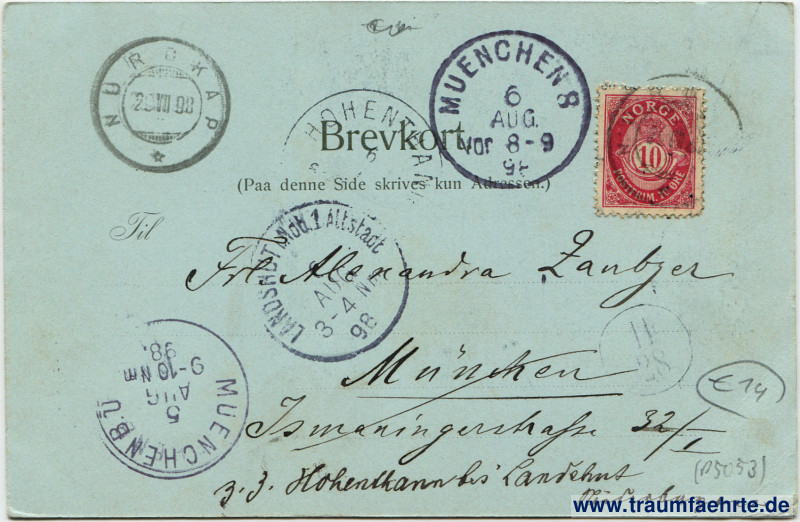 NORDKAP
29 VII 98
HOHENTHANN
6
MUENCHEN 8
6
AUG.
Vor 8-9
98
NORGE
10
POSTFRIM. 10 ØRE
Brevkort.
(Paa denne Side skrives kun Adressen.)
Til
LANDSHUT 1 Altstadt
AUG
3-4 NM
98
Frl Alexandra Zaubzer
München
Ismaningerstrasse 32/I
z. Z. Hohenthann bei Landshut
MUENCHEN B.Ü
5
AUG
9-10 Nm
98.
II
28
€ 14
(P5053)
www.traumfaehrte.de